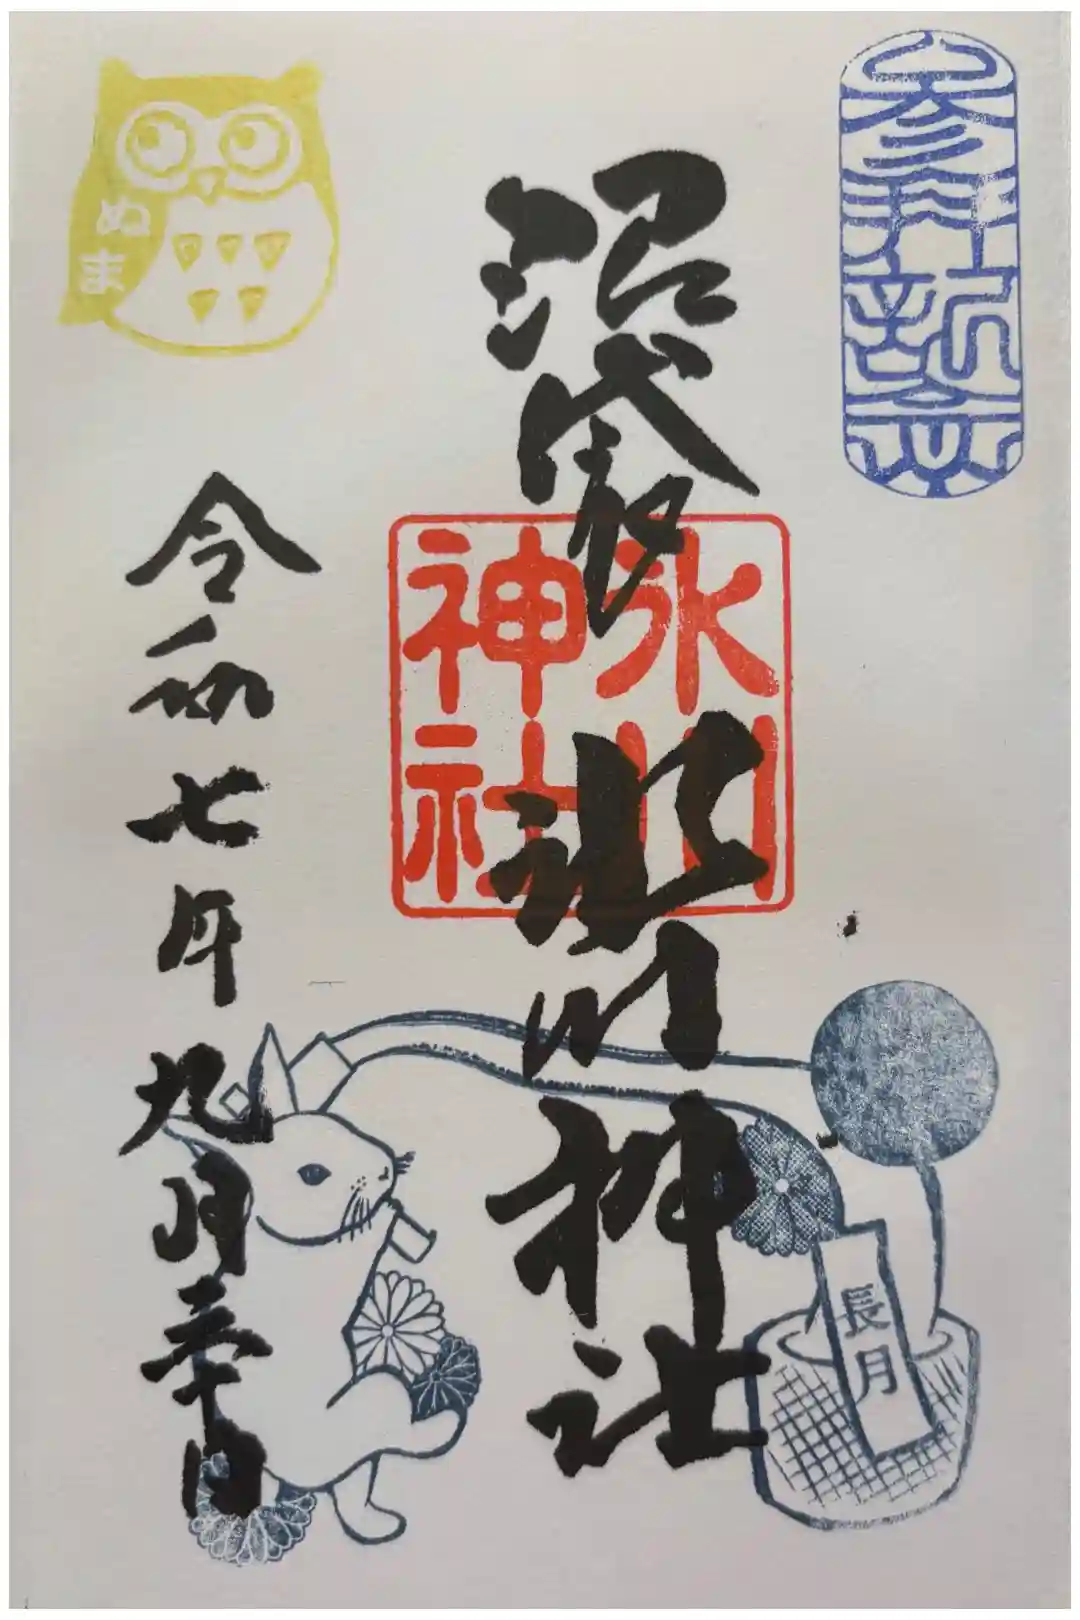 参拝記念
沼袋氷川神社
氷川神社
令和七年九月三十日
ぬま
長月